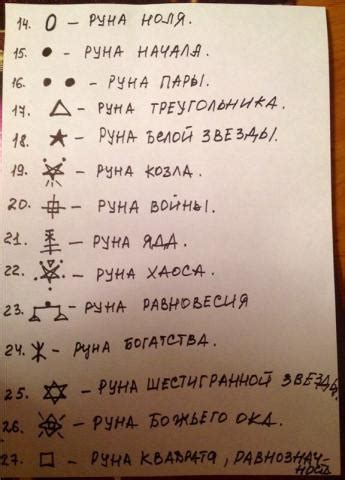 14. O – РУНА НОЛЯ.
15. ● – РУНА НАЧАЛА.
16. ● ● – РУНА ПАРЫ.
17. △ – РУНА ТРЕУГОЛЬНИКА.
18. ★ – РУНА БЕЛОЙ ЗВЕЗДЫ.
19. – РУНА КОЗЛА.
20. – РУНА ВОЙНЫ.
21. – РУНА ЯДА.
22. – РУНА ХАОСА.
23. – РУНА РАВНОВЕСИЯ
24. – РУНА БОГАТСТВА.
25. ✡ – РУНА ШЕСТИГРАННОЙ ЗВЕЗДЫ.
26. – РУНА БОЖЬЕГО ОКА.
27. □ – РУНА КВАДРАТА, РАВНОЗНАЧ-
НОСТЬ